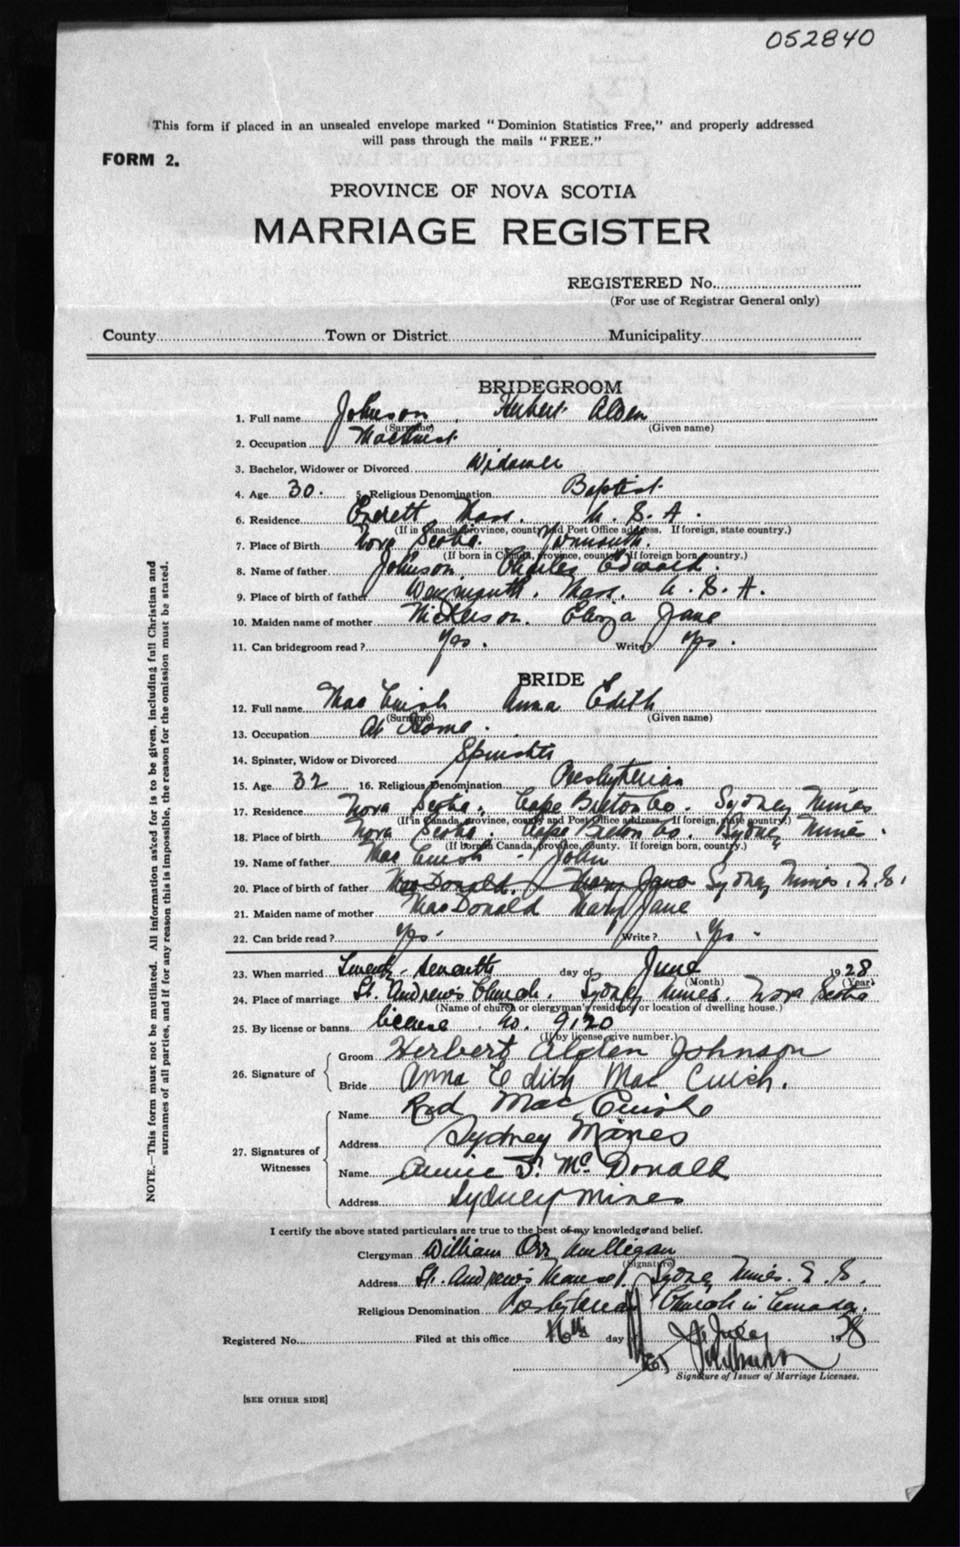 052840
This form if placed in an unsealed envelope marked "Dominion Statistics Free," and properly addressed
will pass through the mails "FREE."
FORM 2.
PROVINCE OF NOVA SCOTIA
MARRIAGE REGISTER
REGISTERED No.
(For use of Registrar General only)
County Town or District Municipality
BRIDEGROOM
1. Full name Johnson Herbert Alden
(Surname) (Given name)
2. Occupation Machinist
3. Bachelor, Widower or Divorced Widower
4. Age 30. 5. Religious Denomination Baptist
6. Residence Everett Mass. U. S. A.
(If in Canada, province, county and Post Office address. If foreign, state country.)
7. Place of Birth Nova Scotia. Yarmouth.
(If born in Canada, province, county. If foreign born, country.)
8. Name of father Johnson Charles Edward.
9. Place of birth of father Weymouth. Mass. U. S. A.
10. Maiden name of mother Nickerson. Eliza Jane
11. Can bridegroom read? Yes. Write? Yes.
BRIDE
12. Full name Mac Cuish Anna Edith
(Surname) (Given name)
13. Occupation At Home.
14. Spinster, Widow or Divorced Spinster
15. Age 32 16. Religious Denomination Presbyterian
17. Residence Nova Scotia. Cape Breton Co. Sydney Mines
(If in Canada, province, county and Post Office address. If foreign, state country.)
18. Place of birth Nova Scotia. Cape Breton Co. Sydney Mines.
(If born in Canada, province, county. If foreign born, country.)
19. Name of father Mac Cuish - John
20. Place of birth of father MacDonald, Mary Jane Sydney Mines. N. S.
21. Maiden name of mother MacDonald Mary Jane
22. Can bride read? Yes. Write? Yes.
23. When married Twenty-seventh day of June 1928
(Month) (Year)
24. Place of marriage St. Andrew's Church. Sydney Mines. Nova Scotia
(Name of church or clergyman's residence or location of dwelling house.)
25. By license or banns license No. 9120
(If by license, give number.)
26. Signature of
Groom Herbert Alden Johnson
Bride Anna Edith Mac Cuish.
27. Signatures of Witnesses
Name Rod Mac Cuish
Address Sydney Mines
Name Annie Mc Donald
Address Sydney Mines
I certify the above stated particulars are true to the best of my knowledge and belief.
Clergyman William Orr Mulligan
(Signature)
Address St. Andrew's Manse. Sydney Mines. N. S.
Religious Denomination Presbyterian Church in Canada.
Registered No. Filed at this office 16th day of July 1928
Signature of Issuer of Marriage Licenses.
[SEE OTHER SIDE]
NOTE.—This form must not be mutilated. All information asked for is to be given, including full Christian and
surnames of all parties, and if for any reason this is impossible, the reason for the omission must be stated.